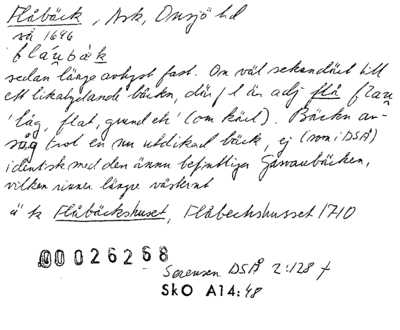 Flåbäck, Ask, Onsjö hd
så 1646
flaubak
sedan länge avhyst fast. Om väl sekundärt till
ett likalydande bäckn, där f l är adj flå flau
'låg, flat, grund etc' (om kärl). Bäckn an-
såg trol en nu utdikad bäck, ej (som i DSÅ)
identisk med den ännu befintliga bäcken,
vilken rinner längre västerut
ä k Flåbäckshuset, Flåbeckshusset 1710
00026268
Sørensen DSÅ 2:128 f
SkO A14:48